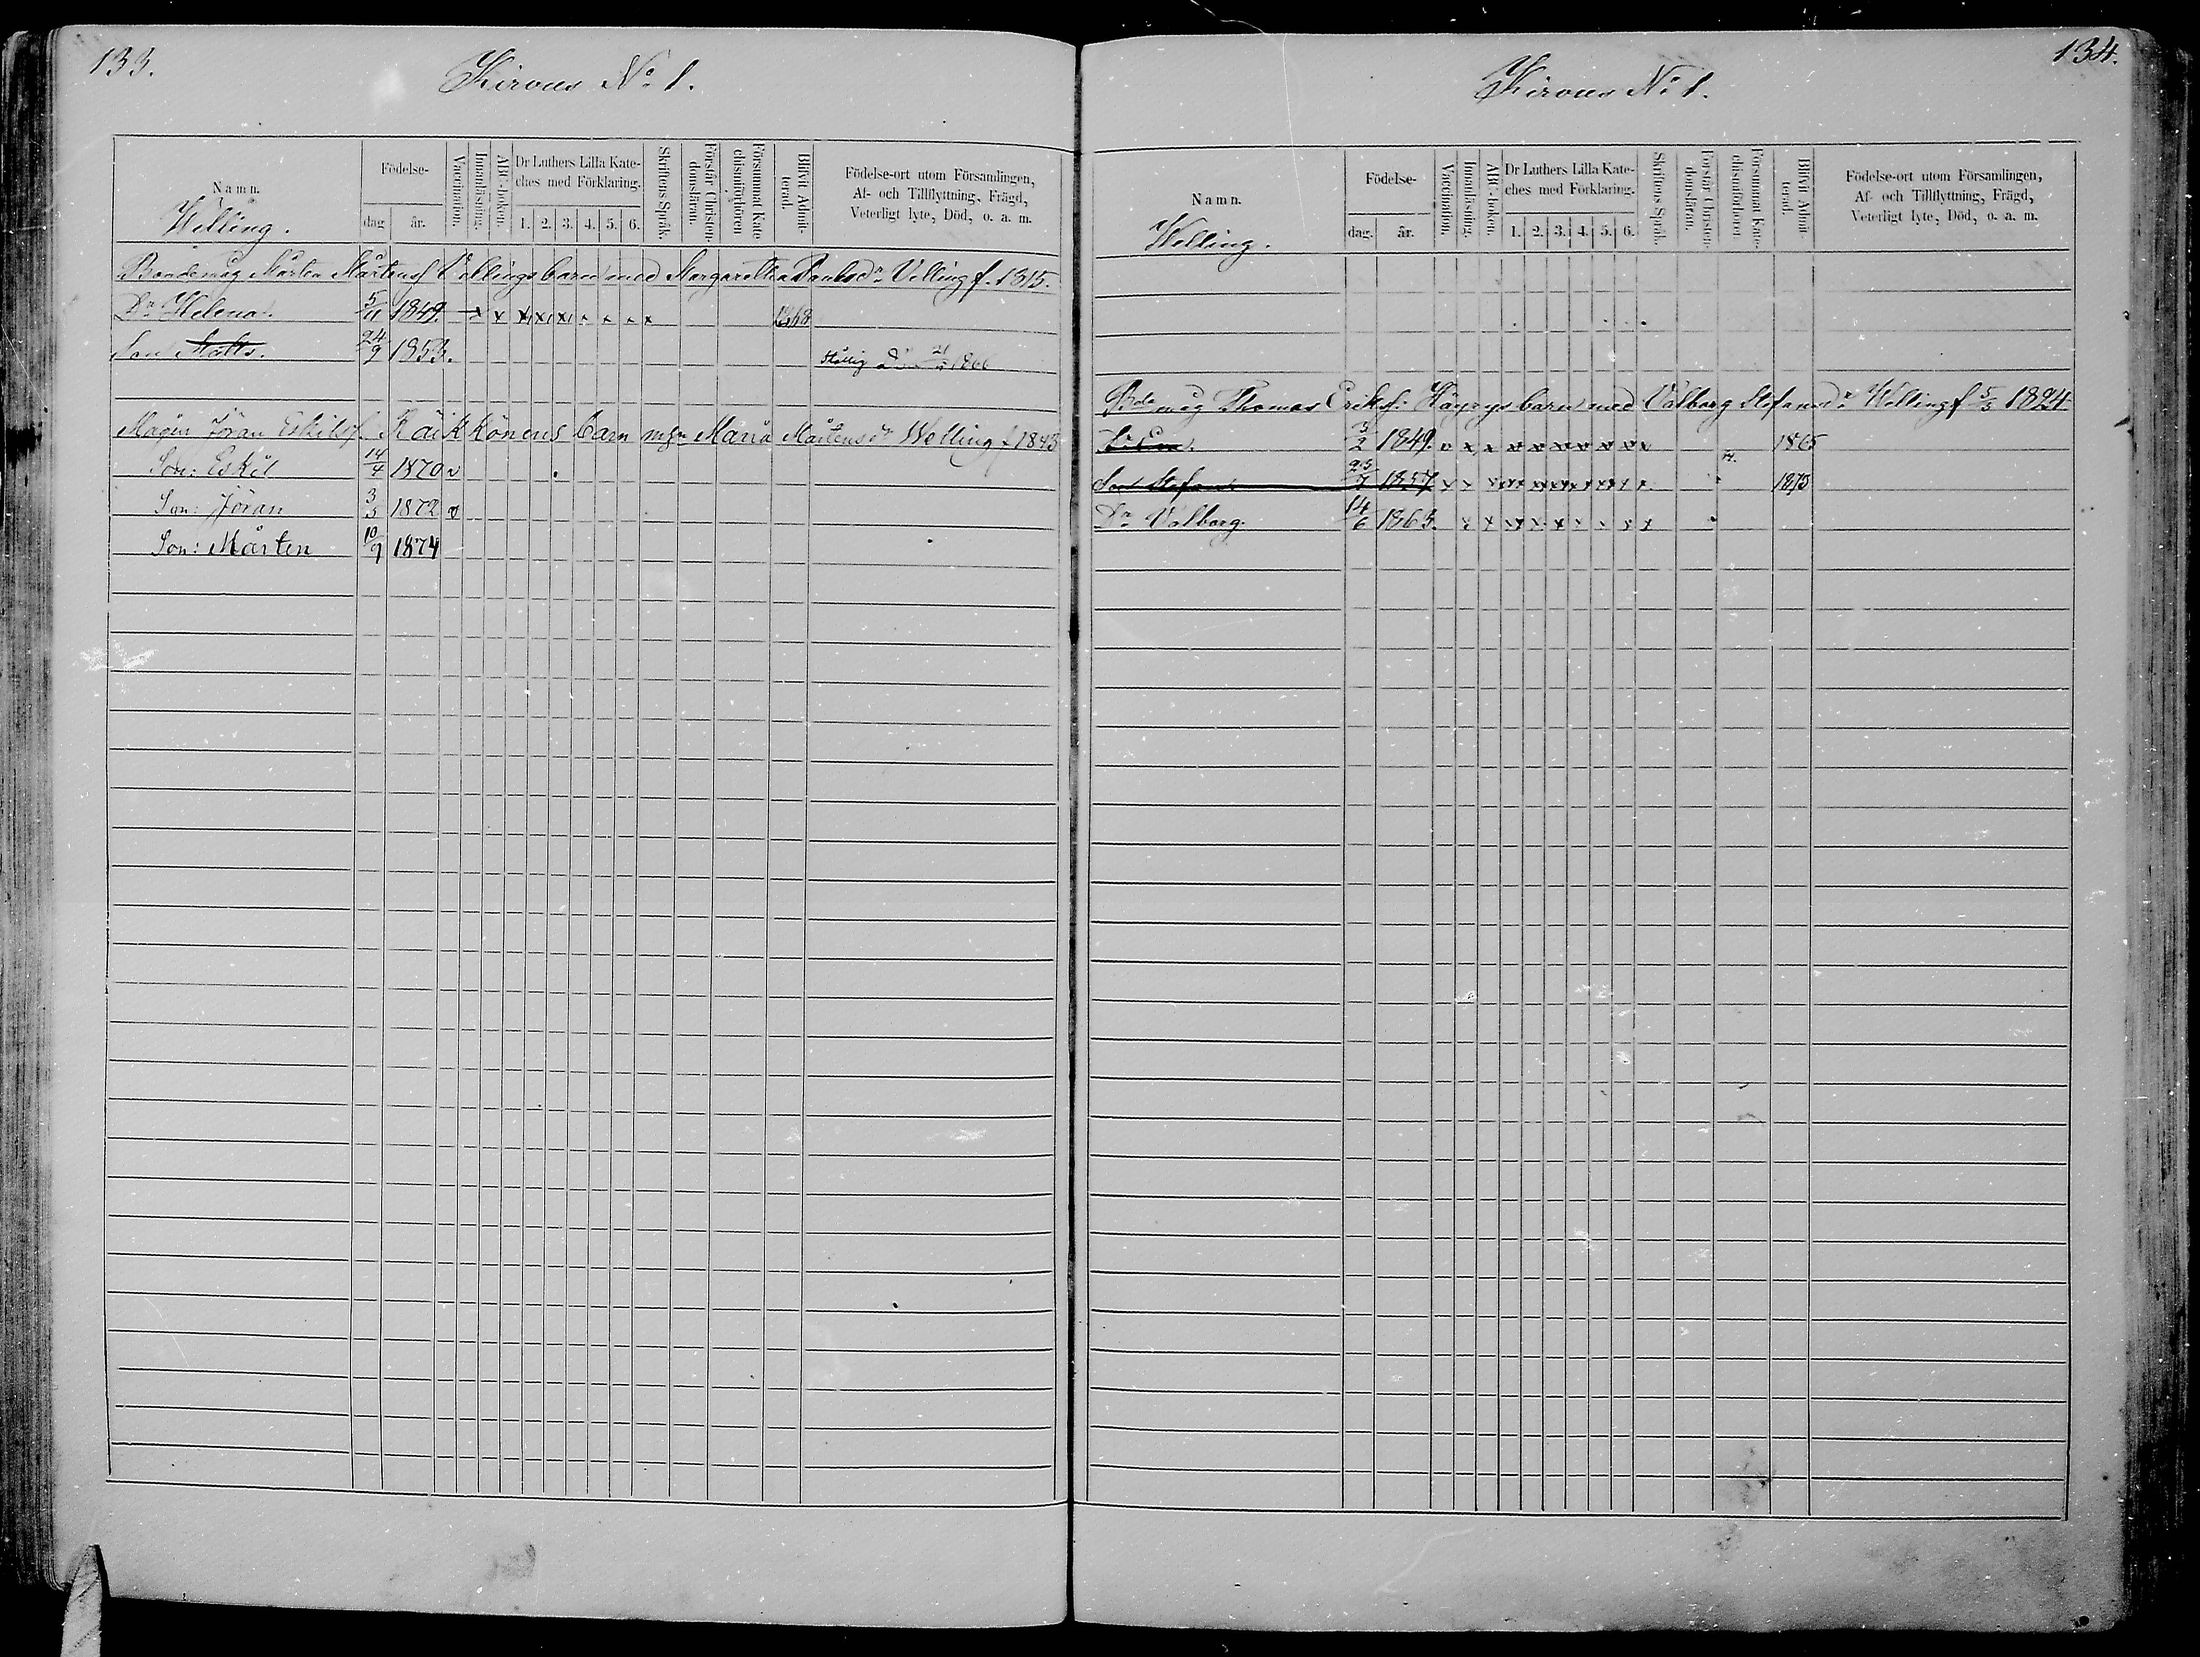 133.
Kirvus No 1.
Namn.
Födelse-
dag
år.
Vaccination.
Innanläsning.
ABC-boken.
Dr Luthers Lilla Kate-
ches med Förklaring.
1. 2. 3. 4. 5. 6.
Skriftens Språk.
Förstår Christen-
domsläran.
Försummat Kate
chismiförhören
Blivit Admit-
terad.
Födelse-ort utom Församlingen,
Af- och Tillflyttning, Frägd,
Veterligt lyte, Död, o. a. m.
Welling.
Bondemåg Mårten Mårtens Vellings barn med Margaretha Paulsdr Velling f. 1815.
Dr Helena. 5/11 1849. x x x x x x x x x 1868
Son Matts. 24/9 1853. 1866
Mågen Jöran Eskils f. Räikkönens barn m hu Maria Mårtensdr Welling f 1843
Son: Eskil 14/4 1870 v
Son: Jöran 3/3 1872 v
Son: Mårten 10/9 1874
134.
Kirvus No 1.
Namn.
Födelse-
dag.
år.
Vaccination.
Innanläsning.
ABC-boken.
Dr Luthers Lilla Kate-
ches med Förklaring.
1. 2. 3. 4. 5. 6.
Skriftens Språk.
Förstår Christen-
domsläran.
Försummat Kate-
chismiförhören.
Blivit Admit-
terad.
Födelse-ort utom Församlingen,
Af- och Tillflyttning, Frägd,
Veterligt lyte, Död, o. a. m.
Welling.
Bde måg Thomas Eriksf. Häyrys barn med Valborg Stefansdr Welling f 5/3 1824.
3/2 1849. 1865
Son Stefan 25/7 1857 1873
Dr Valborg. 14/6 1863.